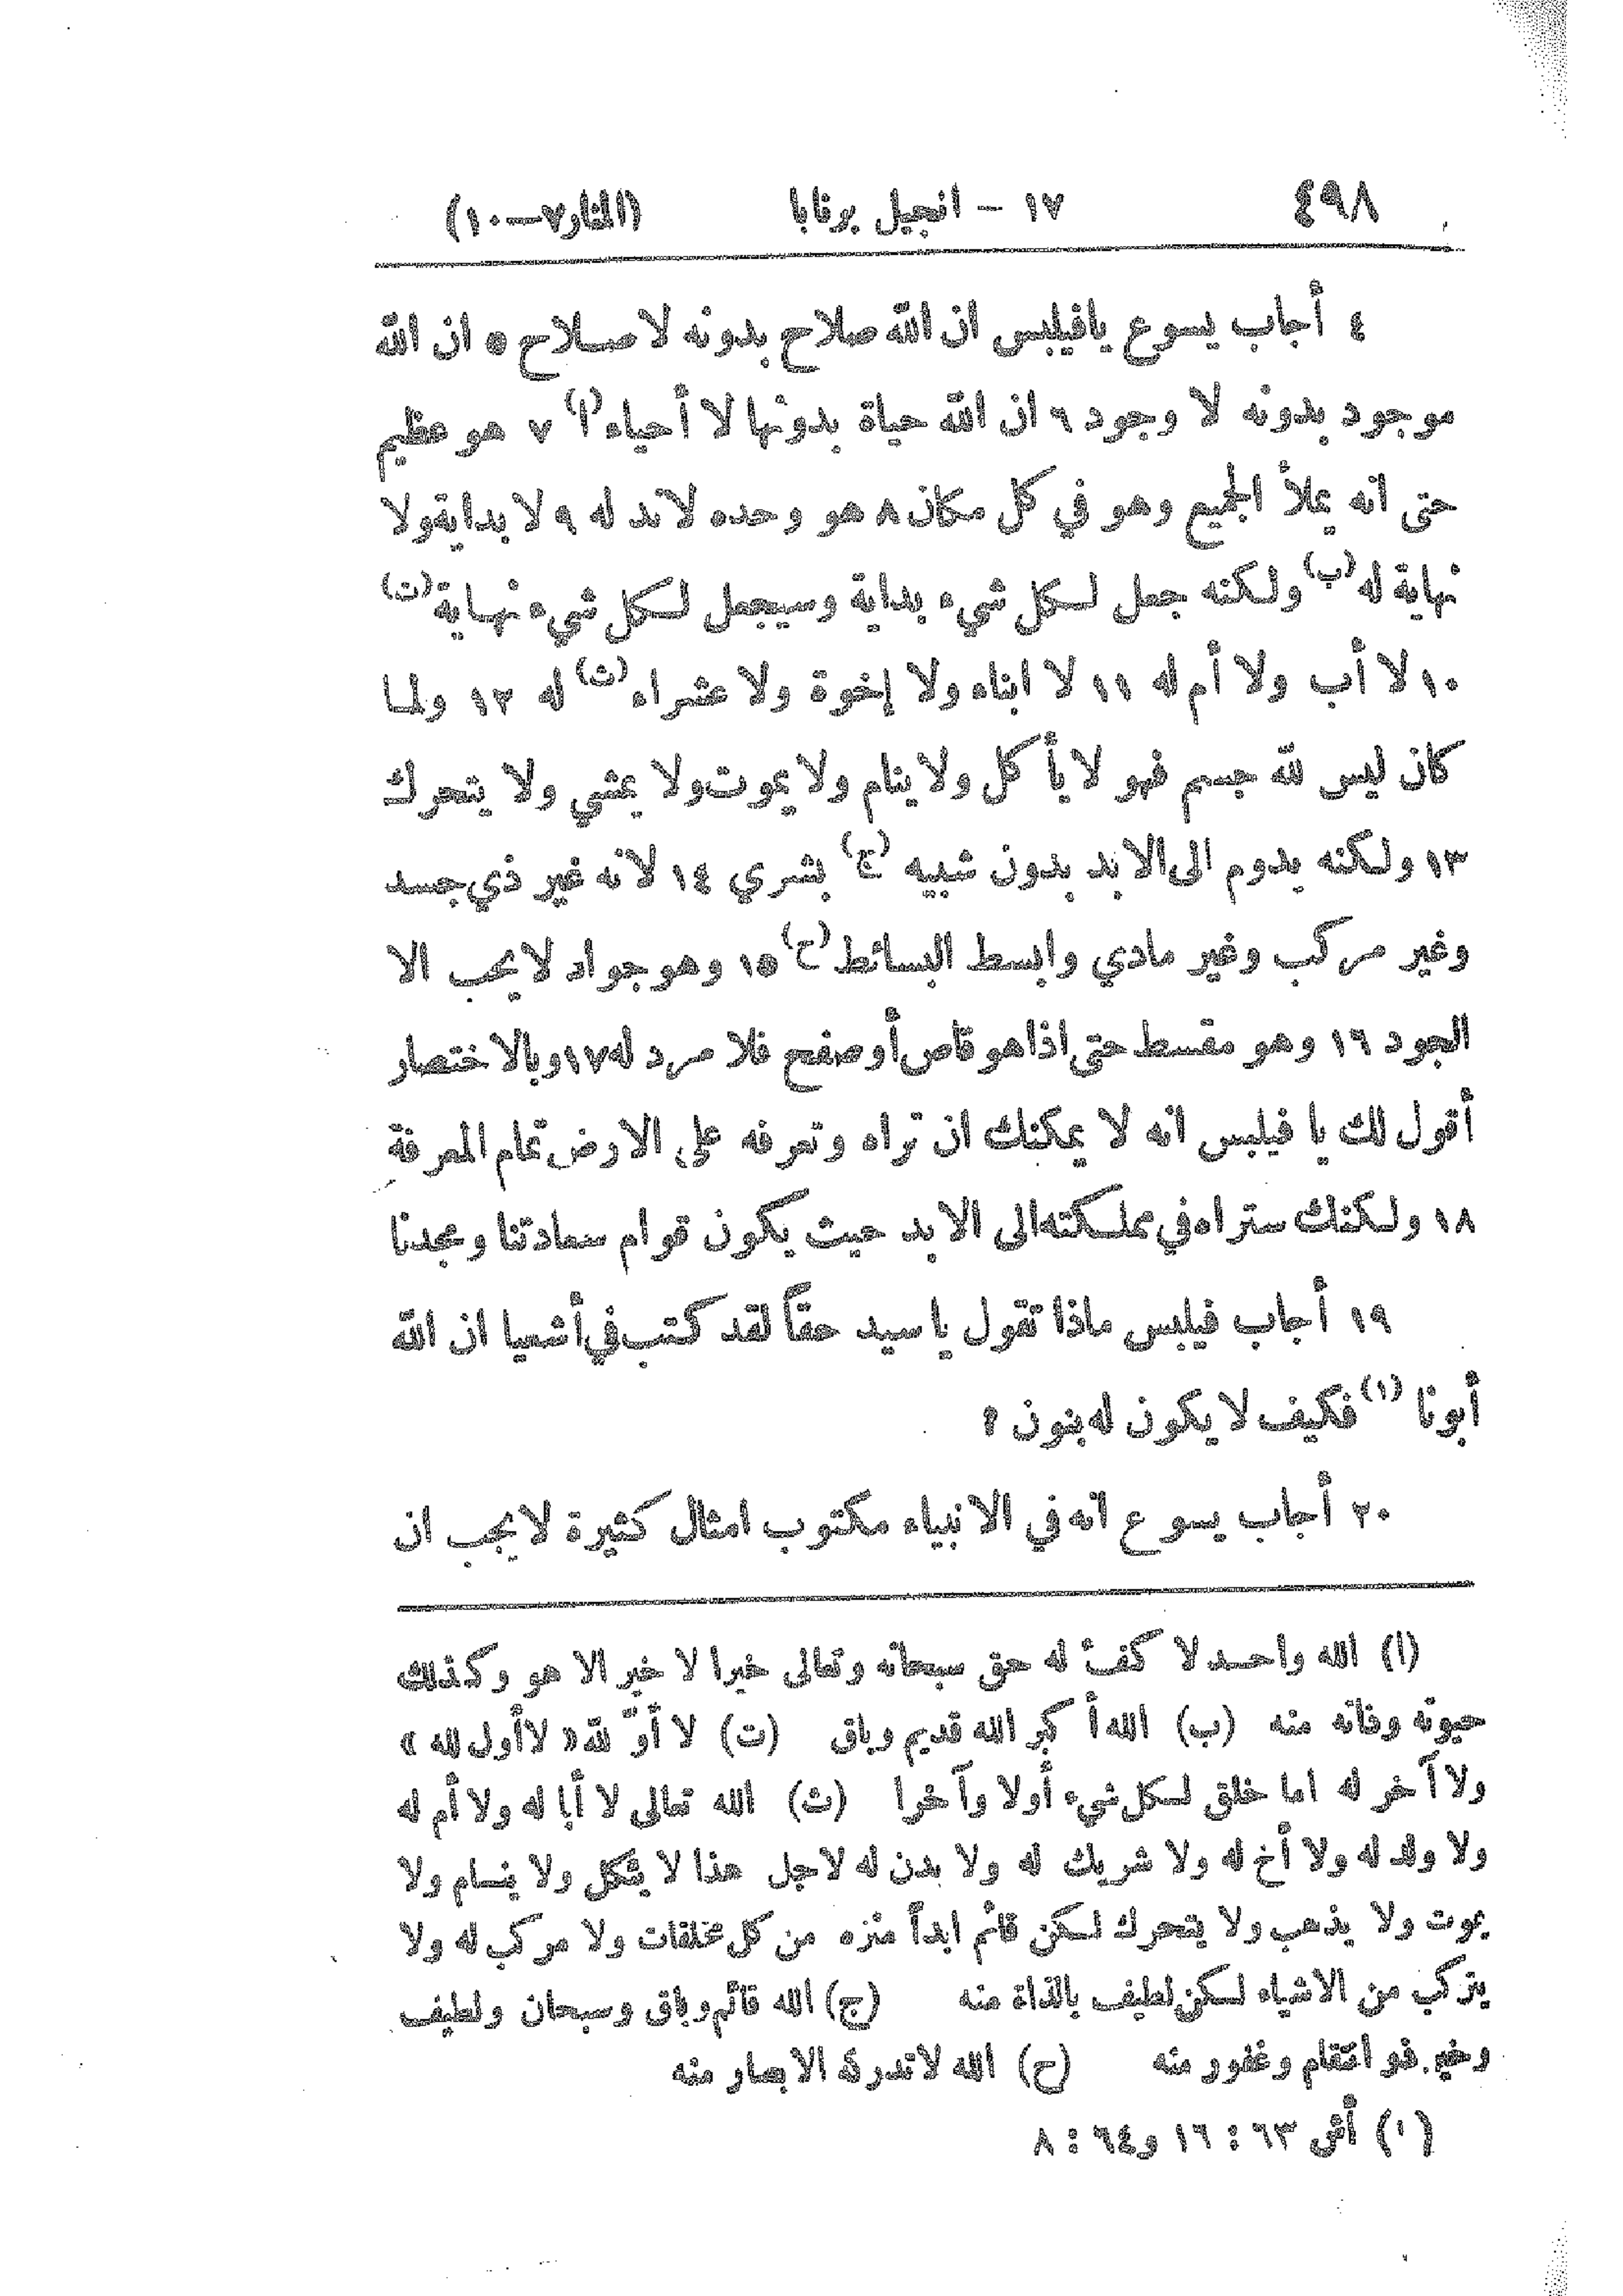 ٤٩٨ ١٧ – انجيل برنابا (المنار٧—١٠)
٤ أجاب يسوع يافيلبس ان الله صلاح بدونه لا صلاح ٥ ان الله
موجود بدونه لا وجود ٦ ان الله حياة بدونها لا أحياء(ا) ٧ هو عظيم
حتى انه يملأ الجميع وهو في كل مكان ٨ هو وحده لاند له ٩ لا بداية ولا
نهاية له(ب) ولكنه جعل لكل شيء بداية وسيجعل لكل شيء نهاية(ت)
١٠ لا أب ولا أم له ١١ لا ابناء ولا إخوة ولا عشراء(ث) له ١٢ ولما
كان ليس لله جسم فهو لا يأكل ولا ينام ولا يموت ولا يمشي ولا يتحرك
١٣ ولكنه يدوم الى الابد بدون شبيه (ج) بشري ١٤ لانه غير ذي جسد
وغير مركب وغير مادي وابسط البسائط(ح) ١٥ وهو جواد لا يحب الا
الجود ١٦ وهو مقسط حتى اذا هو قاص أو صفح فلا مرد له ١٧ وبالاختصار
أقول لك يا فيلبس انه لا يمكنك ان تراه وتعرفه على الارض تمام المعرفة
١٨ ولكنك ستراه في مملكته الى الابد حيث يكون قوام سعادتنا ومجدنا
١٩ أجاب فيلبس ماذا تقول يا سيد حقاً لقد كتب في أشعيا ان الله
أبونا (١) فكيف لا يكون له بنون ؟
٢٠ أجاب يسوع انه في الانبياء مكتوب امثال كثيرة لا يجب ان
(ا) الله واحد لا كفؤ له حق سبحانه وتعالى خيرا لا خير الا هو وكذلك
حيوته وفاته منه (ب) الله أكبر الله قديم وباق (ت) لا أوّ لله « لا أول لله »
ولا آخر له اما خلق لكل شيء أولا وآخرا (ث) الله تعالى لا أبا له ولا أم له
ولا ولد له ولا أخ له ولا شريك له ولا بدن له لاجل هذا لا يئكل ولا ينام ولا
يموت ولا يذهب ولا يتحرك لكن قائم ابداً منزه من كل مخلقات ولا مركب له ولا
يتركب من الاشياء لكن لطيف بالذاة منه (ج) الله قائم وباق وسبحان ولطيف
وخبير ذو انتقام وغفور منه (ح) الله لا تدركه الابصار منه
(١) أش ٦٣ : ١٦ و٦٤ : ٨